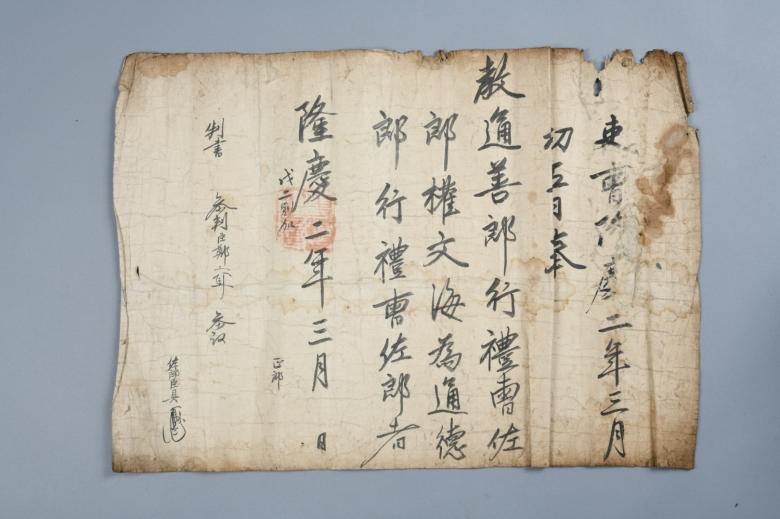 吏曹隆慶二年三月
初五日奉
敎通善郎行禮曹佐
郎權文海為通德
郎行禮曹佐郎者
隆慶二年三月 日
判書 參判臣鄭 參議
正郎
佐郎臣具